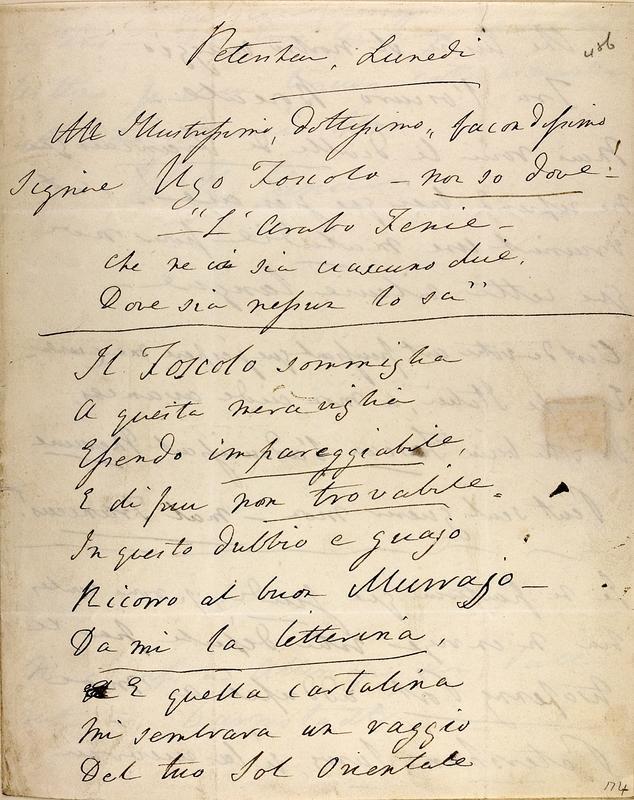 Petersham, Lunedi
486
All Illustrissimo, dottissimo, facondissimo
Signore Ugo Foscolo - non so dove - !
"L'Arabo Fenice -
che ne sia ciascuno dice,
Dove sia nessun lo sa"
Il Foscolo sommiglia
A questa meraviglia
Essendo impareggiabile,
E di piu non trovabile.
In questo dubbio e guajo
Ricorro al buon Murrajo -
Da mi la letterina,
E quella cartalina
Mi sembrava un raggio
Del tuo Sol Orientale
174